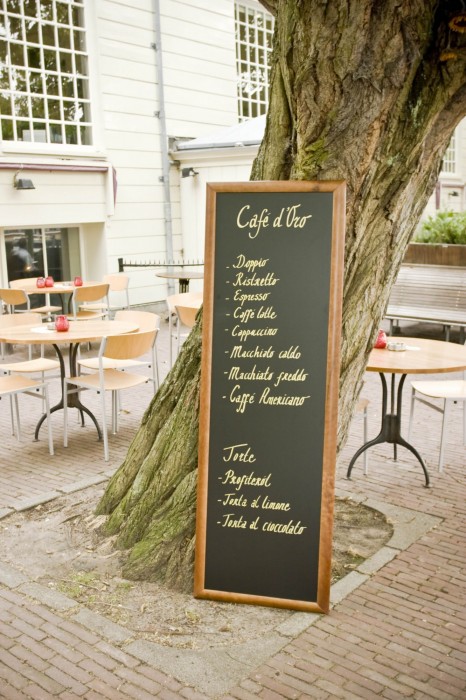 Café d'Oro
- Doppio
- Ristretto
- Espresso
- Caffè latte
- Cappuccino
- Macchiato caldo
- Macchiato freddo
- Caffè Americano
Torte
- Profiterol
- Torta al limone
- Torta al cioccolato